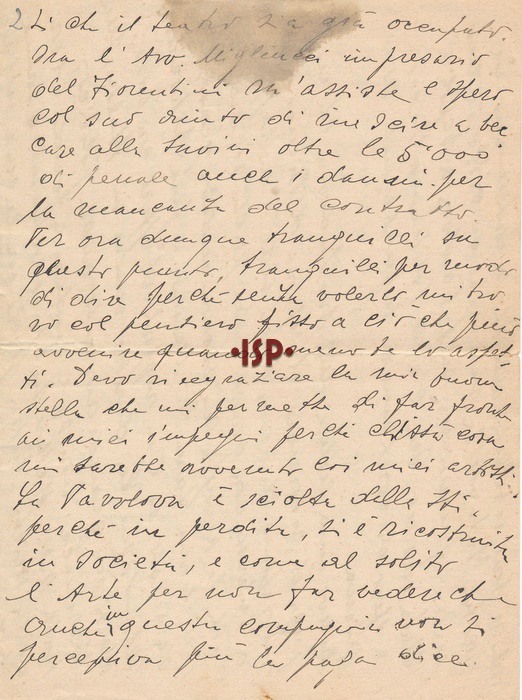 2
ti che il teatro sia già occupato.
Ora l'Avv. Migliucci impresario
del Fiorentini m'assiste e spero
col suo aiuto di riuscire a bec
care alla Suvini oltre le 5.000
di penale anche i danni per
la mancanza del contratto.
Per ora dunque tranquilli su
questo punto, tranquilli per modo
di dire perché senza volerlo mi tro
vo col pensiero fisso a ciò che può
avvenire quando meno te lo aspet
ti. Devo ringraziare la mia buona
stella che mi permette di far fronte
ai miei impegni perché chissà cosa
mi sarebbe avvenuto coi miei artisti.
La Pavolova è sciolta dalla Sti,
perché in perdita, si è ricostruita
in Società, e come al solito
l'Arte per non far vedere che
anche in questa compagnia non si
percepiva più la paga dice
•ISP•